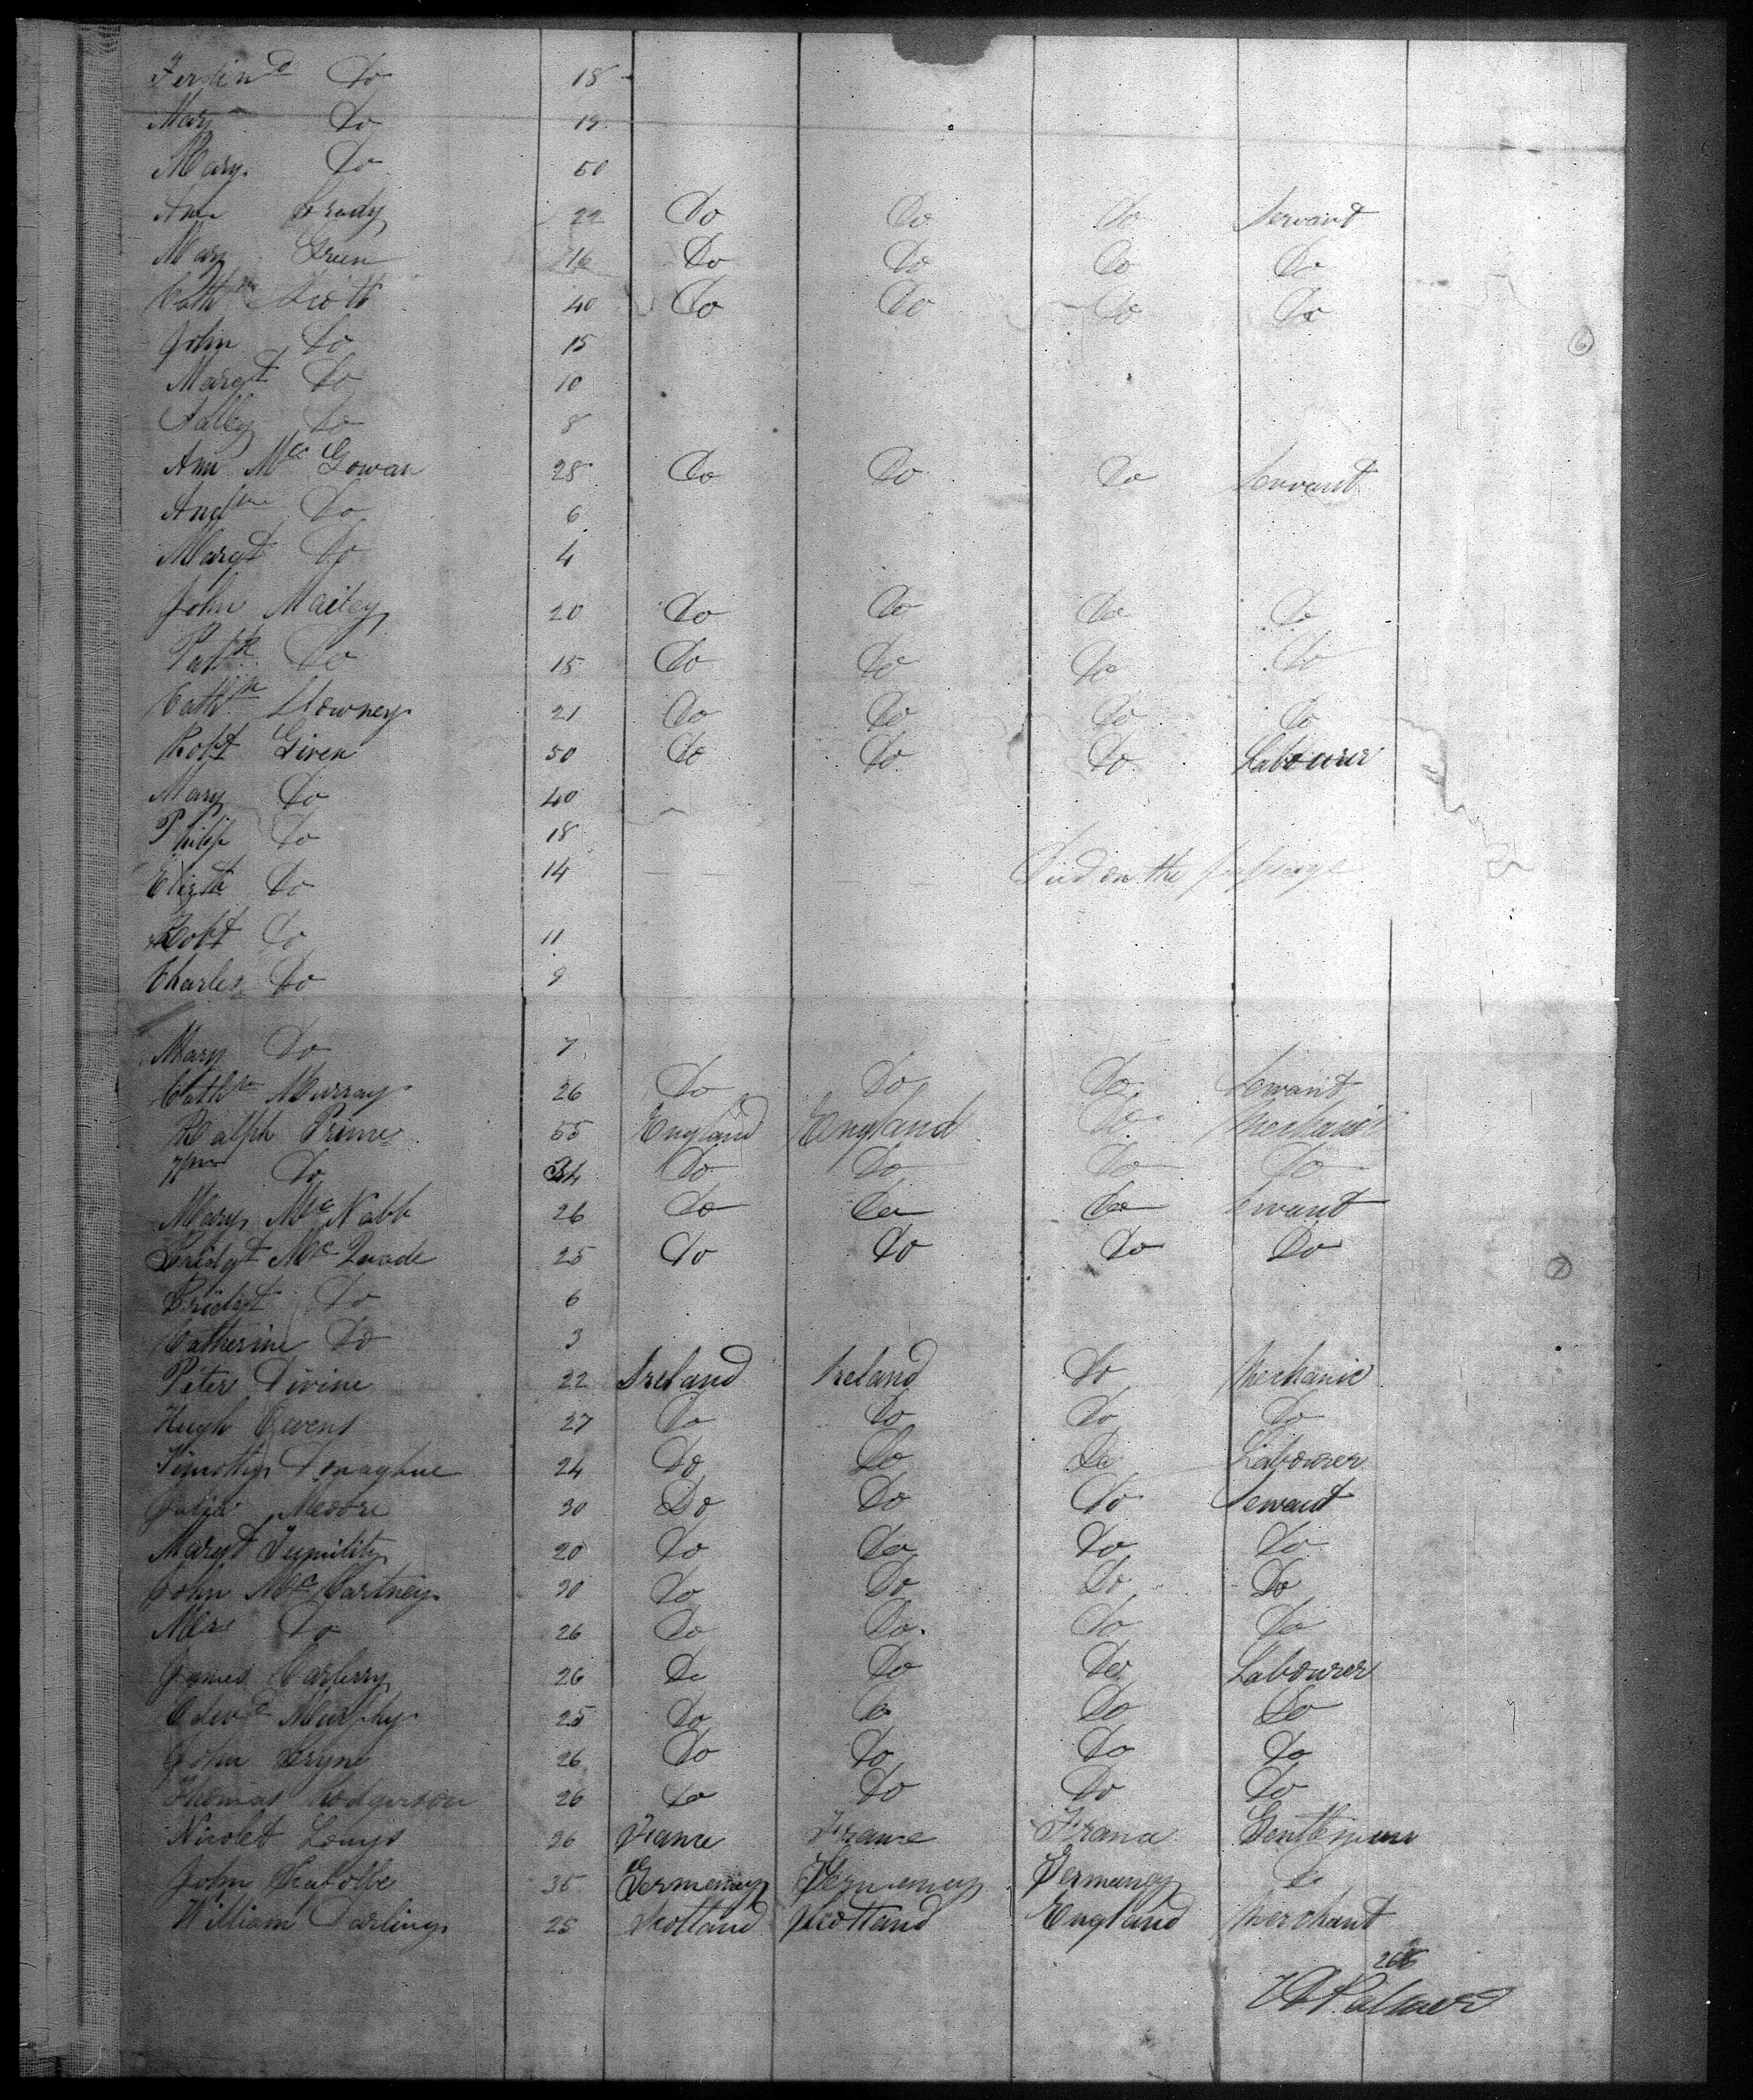 Ferdin^d Do 18
Mary Do 19
Mary Do 50
Ann Grady 22 Do Do Do Servant
Mary Green 16 Do Do Do Do
Cath^ne Scott 40 Do Do Do Do
John Do 15
Margt Do 10
Do 8
Ann McGowan 28 Do Do Do Servant
Do 6
Margt Do 4
John Do 20 Do Do Do Do
Pat^k Do 15 Do Do Do Do
Cath^ne Downey 21 Do Do Do Do
Robt Given 50 Do Do Do Labourer
Mary Do 40
Philip Do 18
Elizth Do 14 Died on the passage
Robt Do 11
Charles Do 9
Mary Do 7
Cath^ne Murray 26 Do Do Do Servant
Ralph Prime 55 England England Do Mechanic
Wm Do 34 Do Do Do Do
Mary McNabb 26 Do Do Do Servant
Bridgt McQuade 25 Do Do Do Do
Bridgt Do 6
Catherine Do 3
Peter Divine 22 Ireland Ireland Do Mechanic
Hugh Owens 27 Do Do Do Do
Timothy Donaghue 24 Do Do Do Labourer
Julia Moore 30 Do Do Do Servant
Margt 20 Do Do Do Do
John McCartney 30 Do Do Do Do
Mrs Do 26 Do Do Do Do
James Carberry 26 Do Do Do Labourer
Edwd Murphy 25 Do Do Do Do
John Bryne 26 Do Do Do Do
Thomas Rodgerson 26 Do Do Do Do
Nicolet Louys 26 France France France Gentleman
John 35 Germany Germany Germany Do
William Darling 25 Scotland Scotland England Merchant
266
Palmer